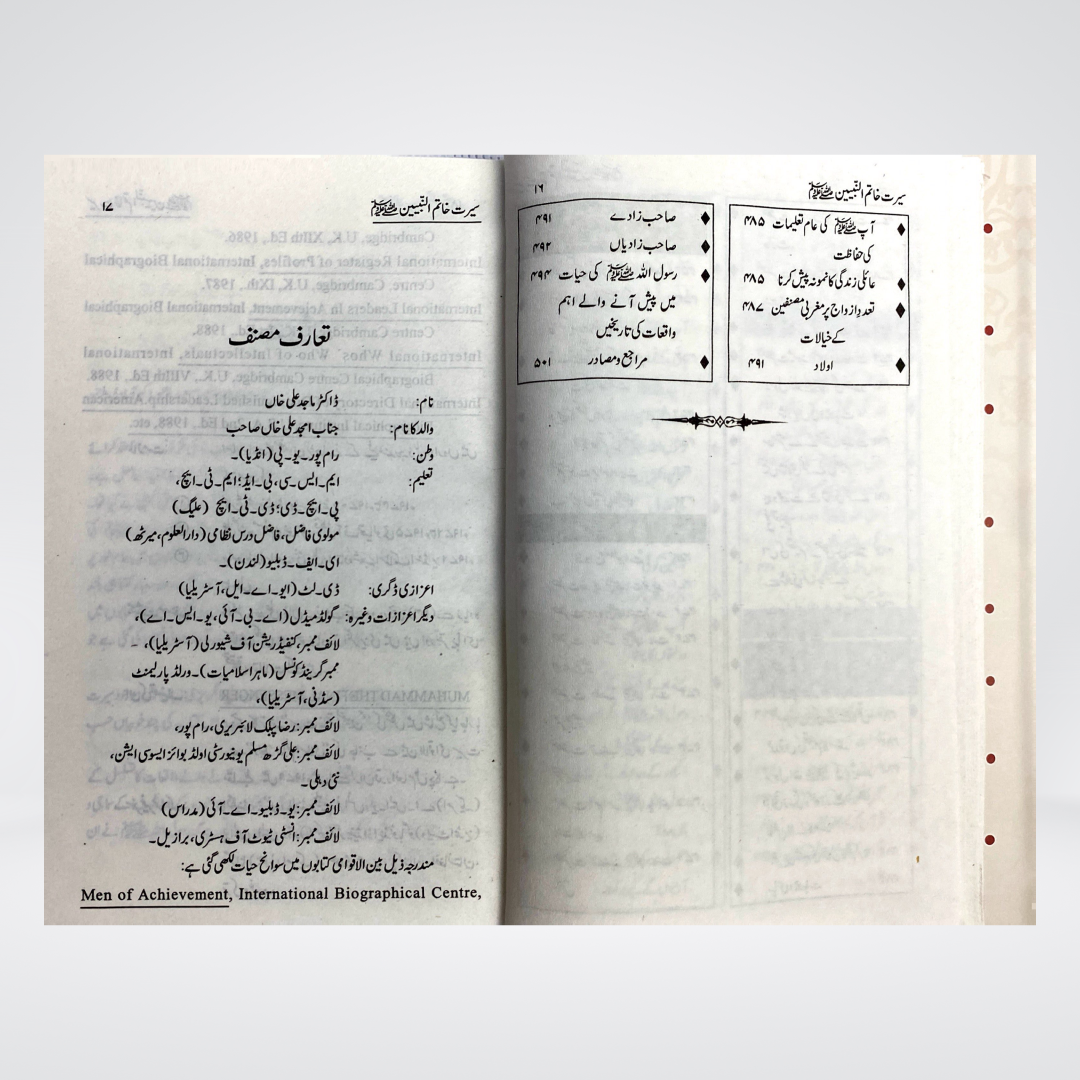 سیرت خاتم النّبیین ﷺ
۱۶
آپ ﷺ کی عام تعلیمات ۴۸۵
کی حفاظت
عائلی زندگی کا نمونہ پیش کرنا ۴۸۵
تعدد ازدواج پر مغربی مصنفین ۴۸۷
کے خیالات
اولاد ۴۹۱
صاحب زادے ۴۹۱
صاحب زادیاں ۴۹۲
رسول اللہ ﷺ کی حیات ۴۹۴
میں پیش آنے والے اہم
واقعات کی تاریخیں
مراجع و مصادر ۵۰۱
سیرت خاتم النّبیین ﷺ
۱۷
تعارف مصنف
نام: ڈاکٹر ماجد علی خاں
والد کا نام: جناب امجد علی خاں صاحب
وطن: رام پور۔یو۔پی (انڈیا)۔
تعلیم: ایم۔ایس۔سی، بی۔ایڈ؛ ایم۔ٹی۔ایچ،
پی۔ایچ۔ڈی؛ ڈی۔ٹی۔ایچ (علیگ)
مولوی فاضل، فاضل درس نظامی (دارالعلوم، میرٹھ)
ای۔ایف۔ڈبلیو (لندن)۔
اعزازی ڈگری: ڈی۔لٹ (ایو۔اے۔ایل، آسٹریلیا)
دیگر اعزازات وغیرہ: گولڈ میڈل (اے۔بی۔آئی، یو۔ایس۔اے)،
لائف ممبر، کنفیڈریشن آف شیورلی (آسٹریلیا)،
ممبر گرینڈ کونسل (ماہر اسلامیات)۔ورلڈ پارلیمنٹ
(سڈنی، آسٹریلیا)،
لائف ممبر: رضا پبلک لائبریری، رام پور،
لائف ممبر: علی گڑھ مسلم یونیورسٹی اولڈ بوائز ایسوسی ایشن،
نئی دہلی۔
لائف ممبر: یو۔ڈبلیو۔اے۔آئی (مدراس)
لائف ممبر: انسٹی ٹیوٹ آف ہسٹری، برازیل۔
مندرجہ ذیل بین الاقوامی کتابوں میں سوانح حیات لکھی گئی ہے:
Men of Achievement, International Biographical Centre,